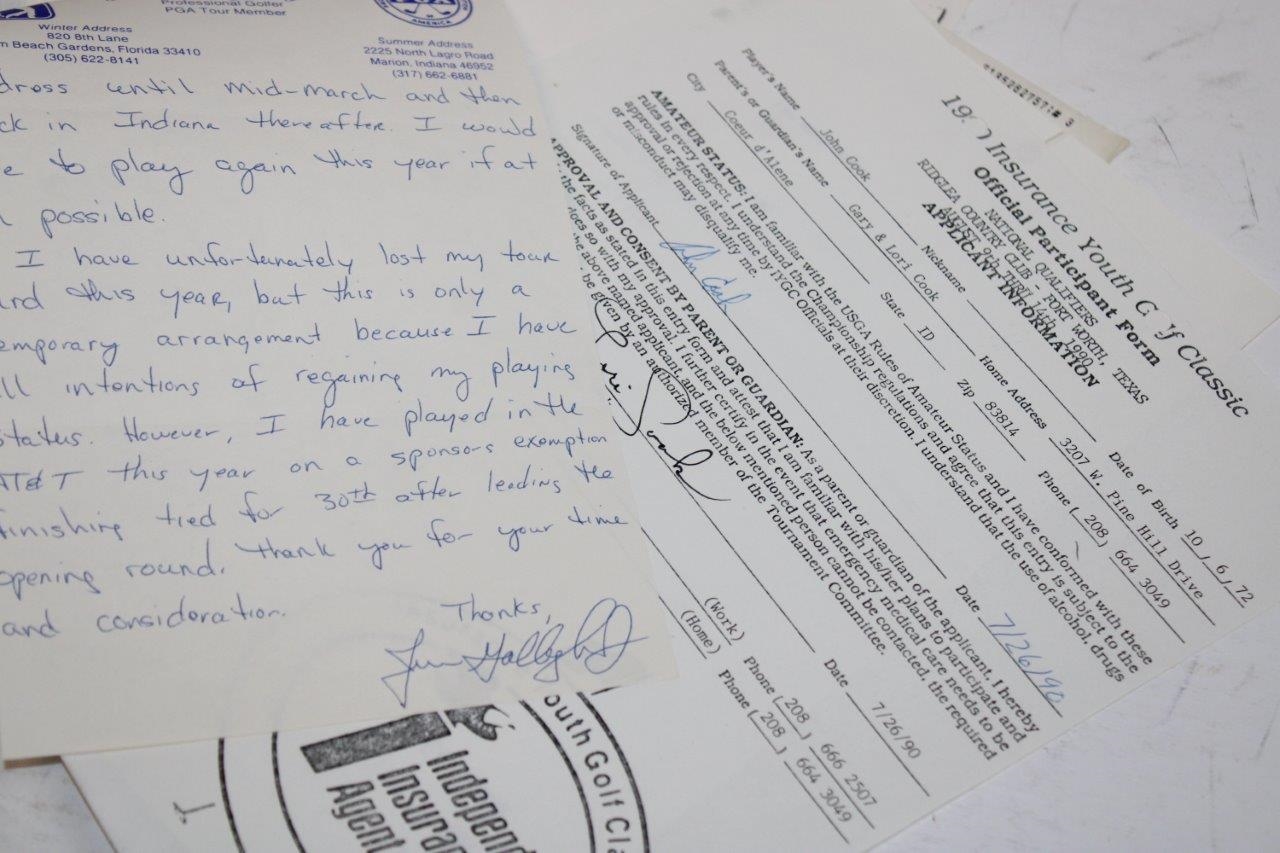 Professional Golfer
PGA Tour Member
OF
AMERICA
Winter Address
820 8th Lane
Beach Gardens, Florida 33410
(305) 622-8141
Summer Address
2225 North Lagro Road
Marion, Indiana 46952
(317) 662-6881
dress until mid-march and then
ck in Indiana thereafter. I would
e to play again this year if at
possible.
I have unfortunately lost my tour
ard this year, but this is only a
emporary arrangement because I have
ll intentions of regaining my playing
status. However, I have played in the
AT&T this year on a sponsors exemption
finishing tied for 30th after leading the
opening round. Thank you for your time
and consideration.
Thanks,
19 0 Insurance Youth G lf Classic
Official Participant Form
NATIONAL QUALIFIERS
RIDGLEA COUNTRY CLUB - FORT WORTH, TEXAS
AUGUST 9th THRU 14th, 1990
APPLICANT INFORMATION
Date of Birth 10 / 6 / 72
Player's Name John Cook Nickname
Home Address 3207 W. Pine Hill Drive
Parent's or Guardian's Name Gary & Lori Cook
City Coeur d'Alene State ID Zip 83814 Phone ( 208 ) 664 3049
AMATEUR STATUS: I am familiar with the USGA Rules of Amateur Status and I have conformed with these
rules in every respect. I understand the Championship regulations and agree that this entry is subject to the
approval or rejection at any time by IYGC Officials at their discretion. I understand that the use of alcohol, drugs
or misconduct may disqualify me.
Signature of Applicant John Cook Date 7/26/90
APPROVAL AND CONSENT BY PARENT OR GUARDIAN: As a parent or guardian of the applicant, I hereby
the facts as stated in this entry form and attest that I am familiar with his/her plans to participate and
does so with my approval. I further certify in the event that emergency medical care needs to be
the above named applicant, and the below mentioned person cannot be contacted, the required
be given by an authorized member of the Tournament Committee.
Lori Cook Date 7/26/90
(Work) Phone ( 208 ) 666 2507
(Home) Phone ( 208 ) 664 3049
outh Golf Cla
Independ
Insuran
Agent